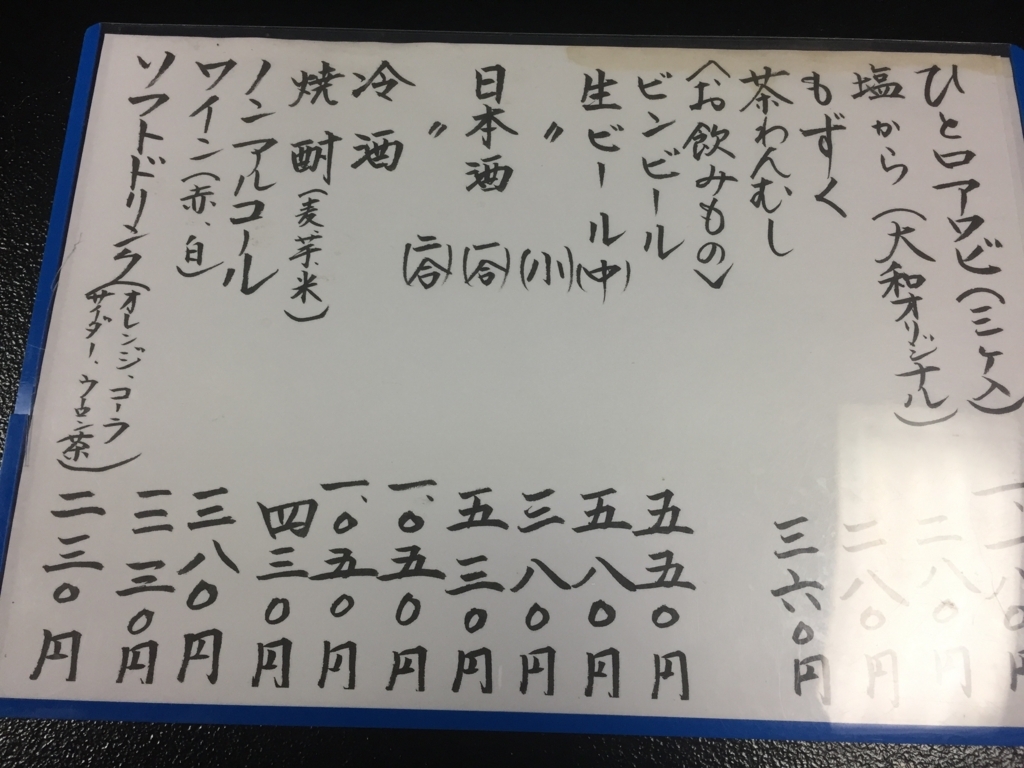 ひと口アワビ(三ケ入)
塩から(大和オリジナル) 二八〇円
もずく 二八〇円
茶わんむし 三六〇円
〈お飲みもの〉
ビンビール 五五〇円
生ビール(中) 五八〇円
〃 (小) 三八〇円
日本酒 (一合) 五三〇円
〃 (二合) 一、〇五〇円
冷酒 一、〇五〇円
焼酎(麦、芋、米) 四三〇円
ノンアルコール 三八〇円
ワイン(赤、白) 三三〇円
ソフトドリンク(オレンジ、コーラ
サイダー、ウーロン茶) 二三〇円